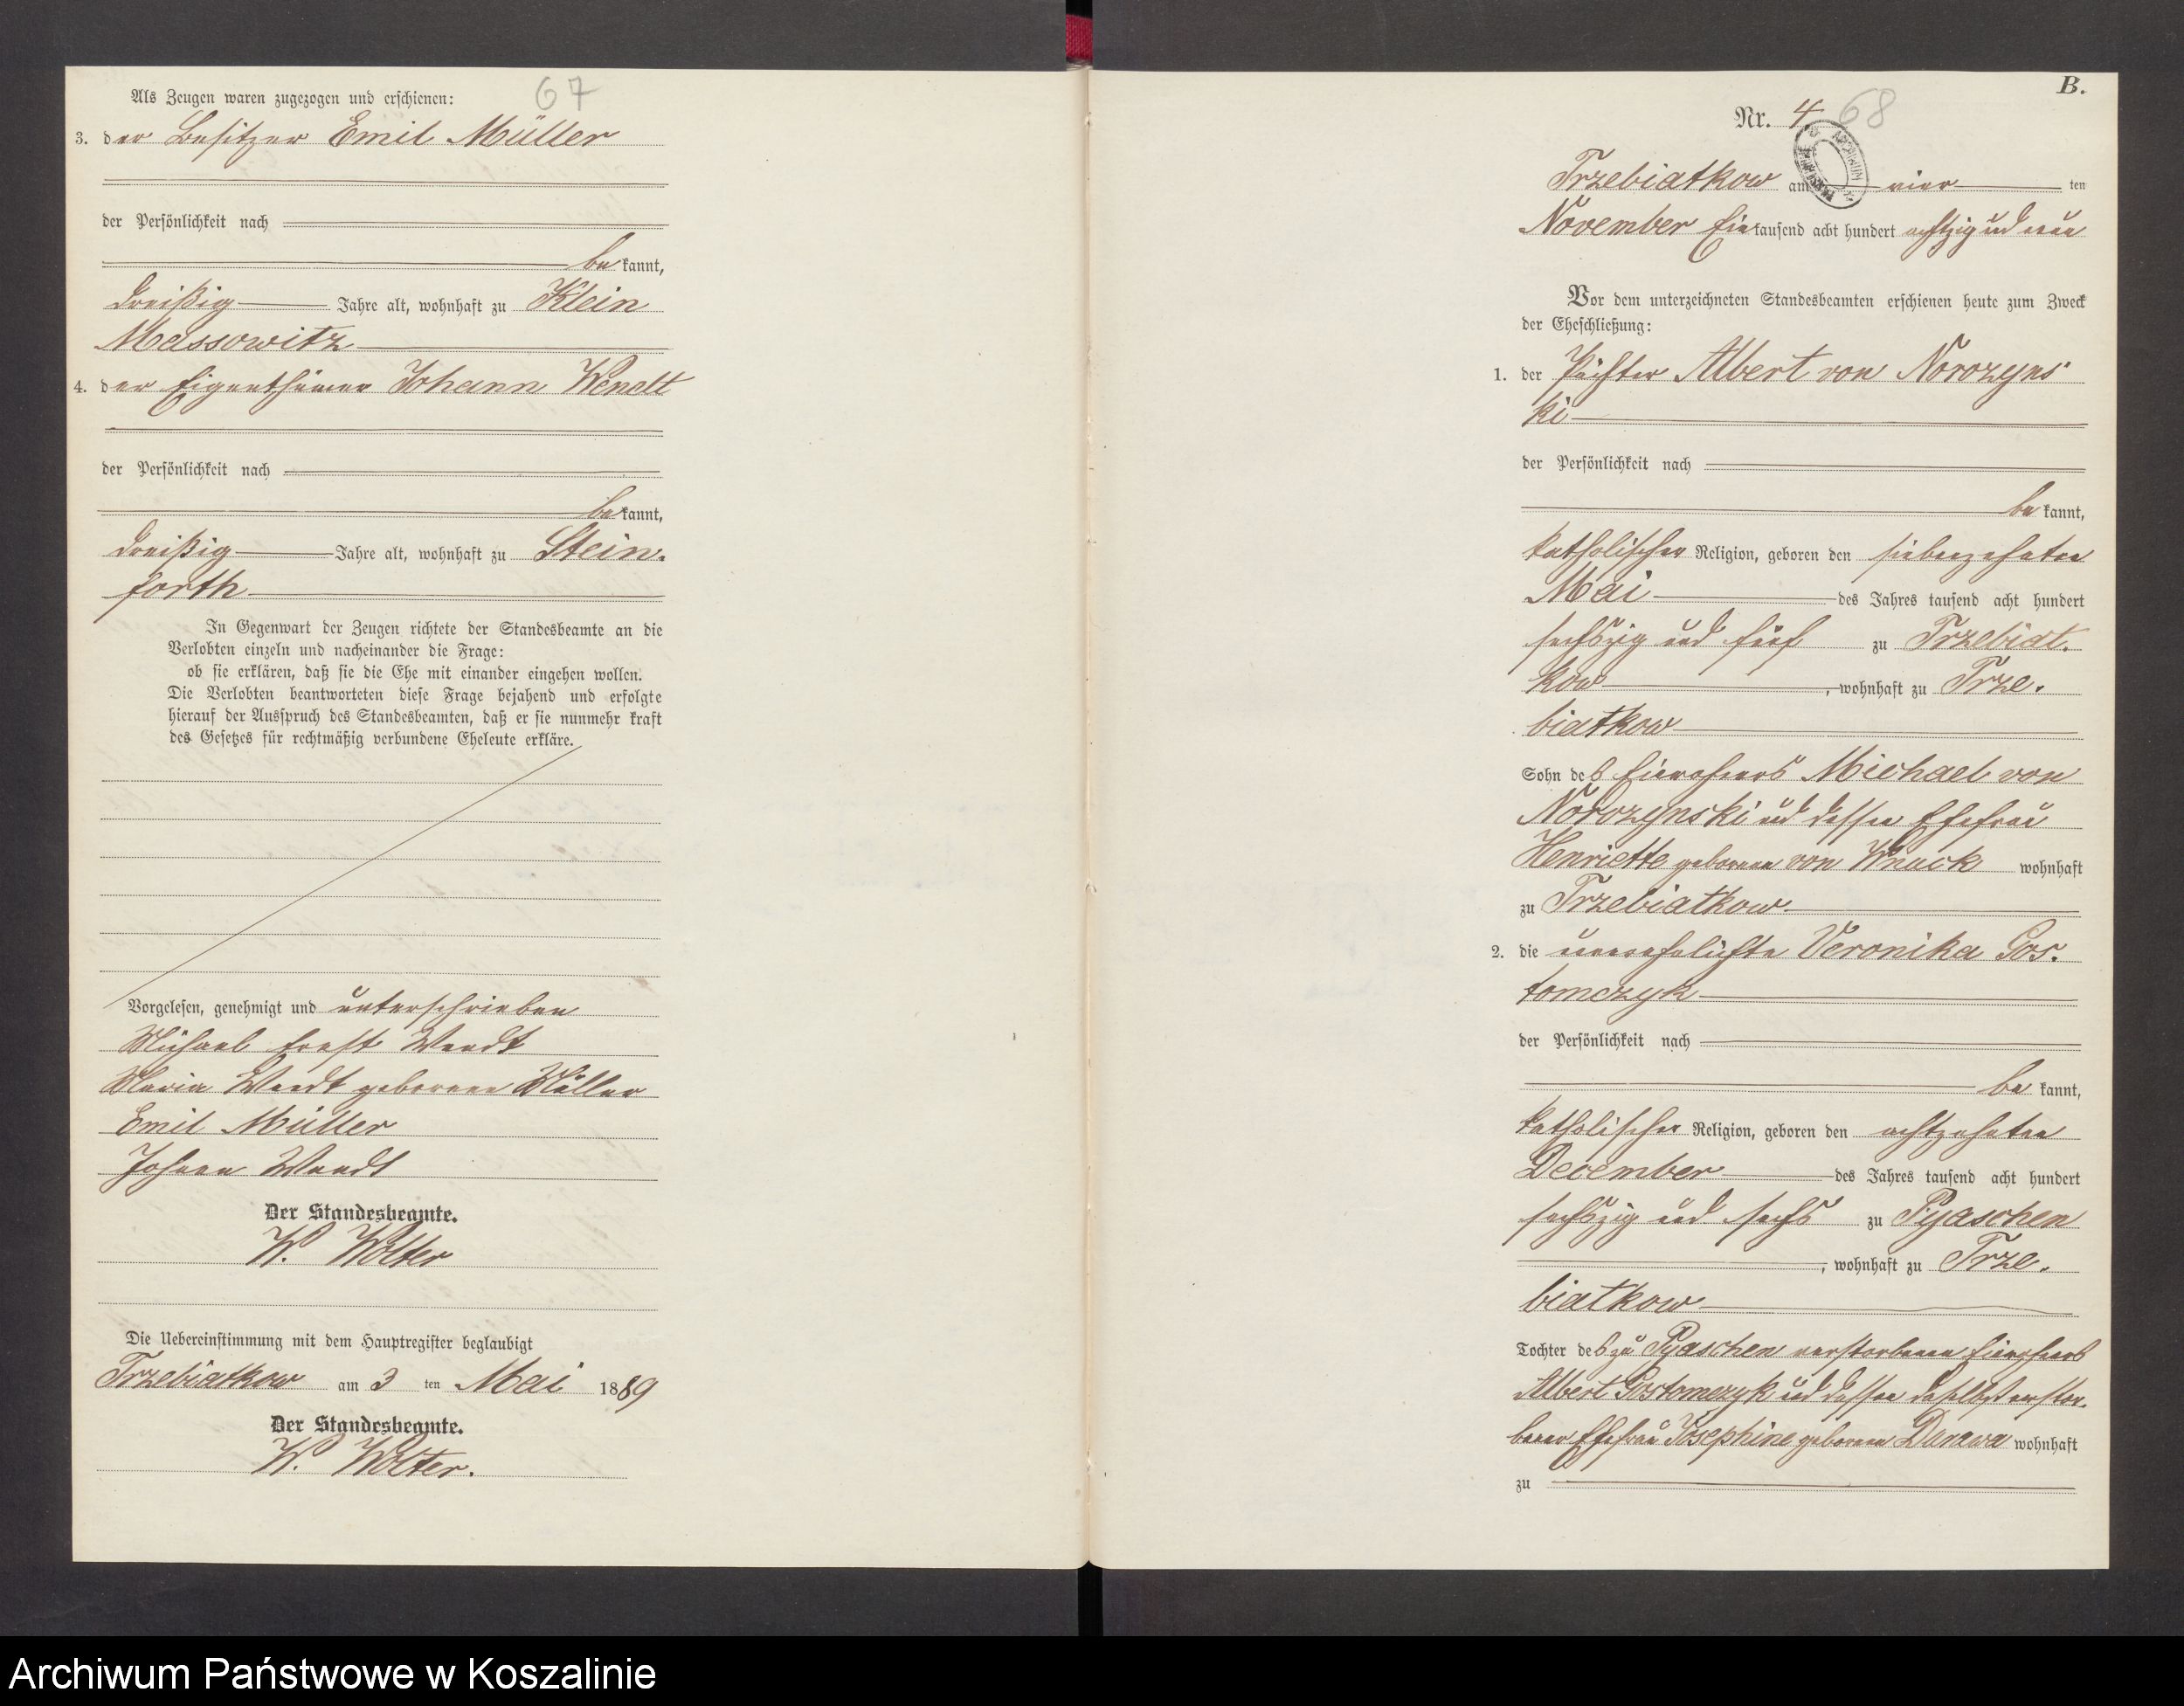 67
Als Zeugen waren zugezogen und erschienen:
3. der Besitzer Emil Müller
der Persönlichkeit nach
bekannt,
dreißig Jahre alt, wohnhaft zu Klein
Massowitz
4. der Eigenthümer Johann Wendt
der Persönlichkeit nach
bekannt,
dreißig Jahre alt, wohnhaft zu Stein-
forth
In Gegenwart der Zeugen richtete der Standesbeamte an die
Verlobten einzeln und nacheinander die Frage:
ob sie erklären, daß sie die Ehe mit einander eingehen wollen.
Die Verlobten beantworteten diese Frage bejahend und erfolgte
hierauf der Ausspruch des Standesbeamten, daß er sie nunmehr kraft
des Gesetzes für rechtmäßig verbundene Eheleute erkläre.
Vorgelesen, genehmigt und unterschrieben
Michael Ernst Wendt
Maria Wendt geborene Müller
Emil Müller
Johann Wendt
Der Standesbeamte.
W. Wolter
Die Uebereinstimmung mit dem Hauptregister beglaubigt
Trzebiatkow am 3 ten Mai 1889
Der Standesbeamte.
W. Wolter.
B.
Nr. 4 68
ARCHIWUM
Trzebiatkow am vier ten
November Eintausend acht hundert achtzig und neun
Vor dem unterzeichneten Standesbeamten erschienen heute zum Zweck
der Eheschließung:
1. der Pächter Albert von Norozyns-
ki
der Persönlichkeit nach
bekannt,
katholischer Religion, geboren den siebenzehnten
Mai des Jahres tausend acht hundert
sechszig und fünf zu Trzebiat-
kow, wohnhaft zu Trze-
biatkow
Sohn des Eigenthümers Michael von
Norozynski und dessen Ehefrau
Henriette geborene von Wnuck wohnhaft
zu Trzebiatkow
2. die unverehelichte Veronika Gos-
tomczyk
der Persönlichkeit nach
bekannt,
katholischer Religion, geboren den achtzehnten
December des Jahres tausend acht hundert
sechszig und sechs zu Pyaschen
, wohnhaft zu Trze-
biatkow
Tochter des zu Pyaschen verstorbenen
Albert Gostomczyk und dessen daselbst verstor-
bener Ehefrau Josephine geborene Darawa wohnhaft
zu
Archiwum Państwowe w Koszalinie